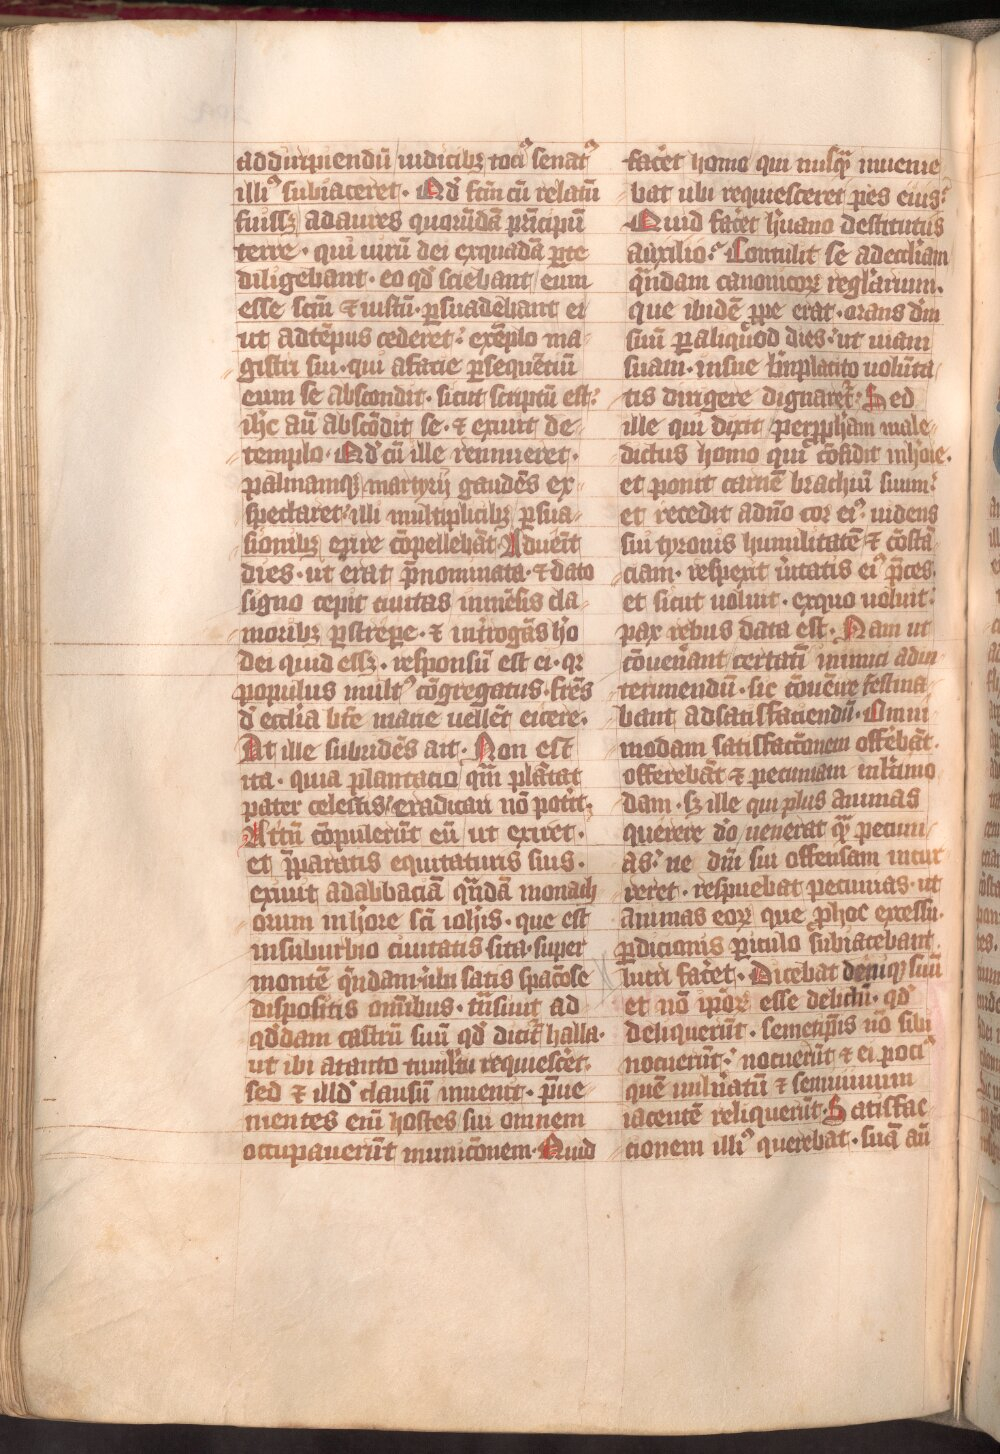 addiripiendū iudicibꝫ toci᾽ senat᾽
illi᾽ subiaceret. Qd̓ fcm̄ cū relatū
fuissꝫ adaures quorūdā p̄ncipū
terre. qui uirū dei exquadā ꝑte
diligebant. eo qd̓ sciebant eum
esse scm̄ ⁊ iustū. ꝑsuadebant ei
ut adtēpus cederet. exēplo ma-
gistri sui. qui afacie ꝑsequētiū
eum se abscondit. sicut scriptū est.
ih̄c aū abscōdit se. ⁊ exiuit de-
templo. Qd̓ cū ille rennueret.
palmamqꝫ martyrij gaudēs ex-
spectaret. illi multiplicibꝫ ꝑsua-
sionibꝫ exire cōpellebāt. Aduen̄t
dies. ut erat p̄nominata. ⁊ dato
signo cepit ciuitas inmēsis cla-
moribꝫ ꝑstrepe. ⁊ int̓rogās ho̓
dei quid essꝫ. responsū est ei. qr
populus mult᾽ cōgregatus. frēs
d̓ ecclīa bt̄e marie uellēt eicere.
At ille subridēs ait. Non est
ita. quia plantacio quā̄ plātat
pater celestis. eradicari nō potit.
Attn̄ cōpulerūt eū ut exiret.
et p̄paratis equitaturis suis.
exiuit adabbaciā qn̄dā monach
orum inhōre sci̅ ioh̄is. que est
insuburbio ciuitatis sita. super
montē qn̄dam. ubi satis spacōse
dispositis omībus. tn̄siuit ad
qd̓dam castrū suū qd̓ dicit̓ halla.
ut ibi atanto tumltu requiescēt.
sed ⁊ illd̓ clausū inuenit. p̄ue-
nientes em̄ hostes sui omnem
occupauerūt municōnem. Quid
fac̓et homo qui nusq̄ inuenie-
bat ubi requiesceret pes eius.
Quid fac̓et h̓uano destitutus
auxilio. Contulit se adecclīam
qn̄dam canonicoꝝ reglarium.
que ibidē ꝓpe erat. orans dn̄m
suū ꝑaliquod dies. ut uiam
suam. insue bn̄placito uolūta
tis dirigere dignaret̓. Sed
ille qui dixit perꝓph̄am male-
dictus homo qui cōfidit inhoīe.
et ponit carnē brachiū suum.
et recedit adn̄o cor ei᾽. uidens
sui tyronis humilitatē ⁊ cōstā
ciam. respexit ūitatis ei᾽ p̄ces.
et sicut uoluit. exquo uoluit.
pax rebus data est. Nam ut
cōuenant certatī inimici adin-
terimendū. sic cōuēire festina-
bant adsatisfaciendū. Omni
modam satisfaccōnem offēbāt.
offerebāt ⁊ pecuniam inl̓timo
dam. sꝫ ille qui plus animas
querere d̓o uenerat q̄ pecuni-
as. ne dn̄i sui offensam incur
reret. respuebat pecunias. ut
animas eoꝝ que ꝓhoc excessu.
ꝑdicionis ꝑiculo subiacebant.
lucri fac̓et. Dicebat deniqꝫ suū
et nō ip̄oꝝ esse delictū. qd̓
deliquerūt. semetip̄is nō sibi
nocuerūt. nocuerūt ⁊ ei poci᾽
quē uuln̓atū ⁊ semiuiuum
iacentē reliquerūt. Satisfac-
cionem illi᾽ querebat. suā aū